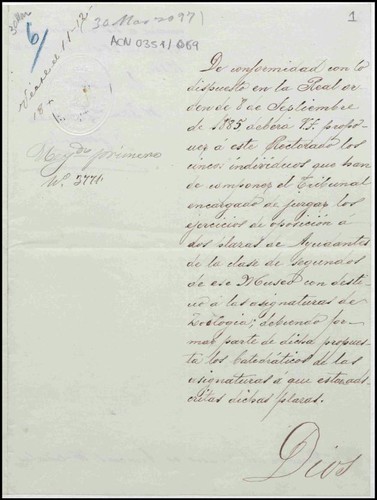 1
6
ACN 0351/069
Negdo. primero
Nº. 3776
De conformidad con lo
dispuesto en la Real or
den de 8 de Septiembre
de 1885 deberá V.S. propo
ner á este Rectorado los
cinco individuos que han
de componer el Tribunal
encargado de juzgar los
ejercicios de oposición á
dos plazas de Ayudantes
de la clase de segundos
de ese Museo con desti
no á las asignaturas de
Zoologia; debiendo for
mar parte de dicha propues
ta los Catedráticos de las
asignaturas á que estan ads
critas dichas plazas.
Dios